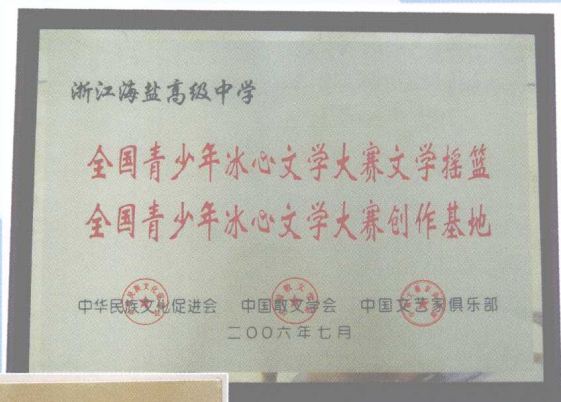 浙江海盐高级中学
全国青少年冰心文学大赛文学摇篮
全国青少年冰心文学大赛创作基地
中华民族文化促进会 中国散文学会 中国文艺家俱乐部
二〇〇六年七月